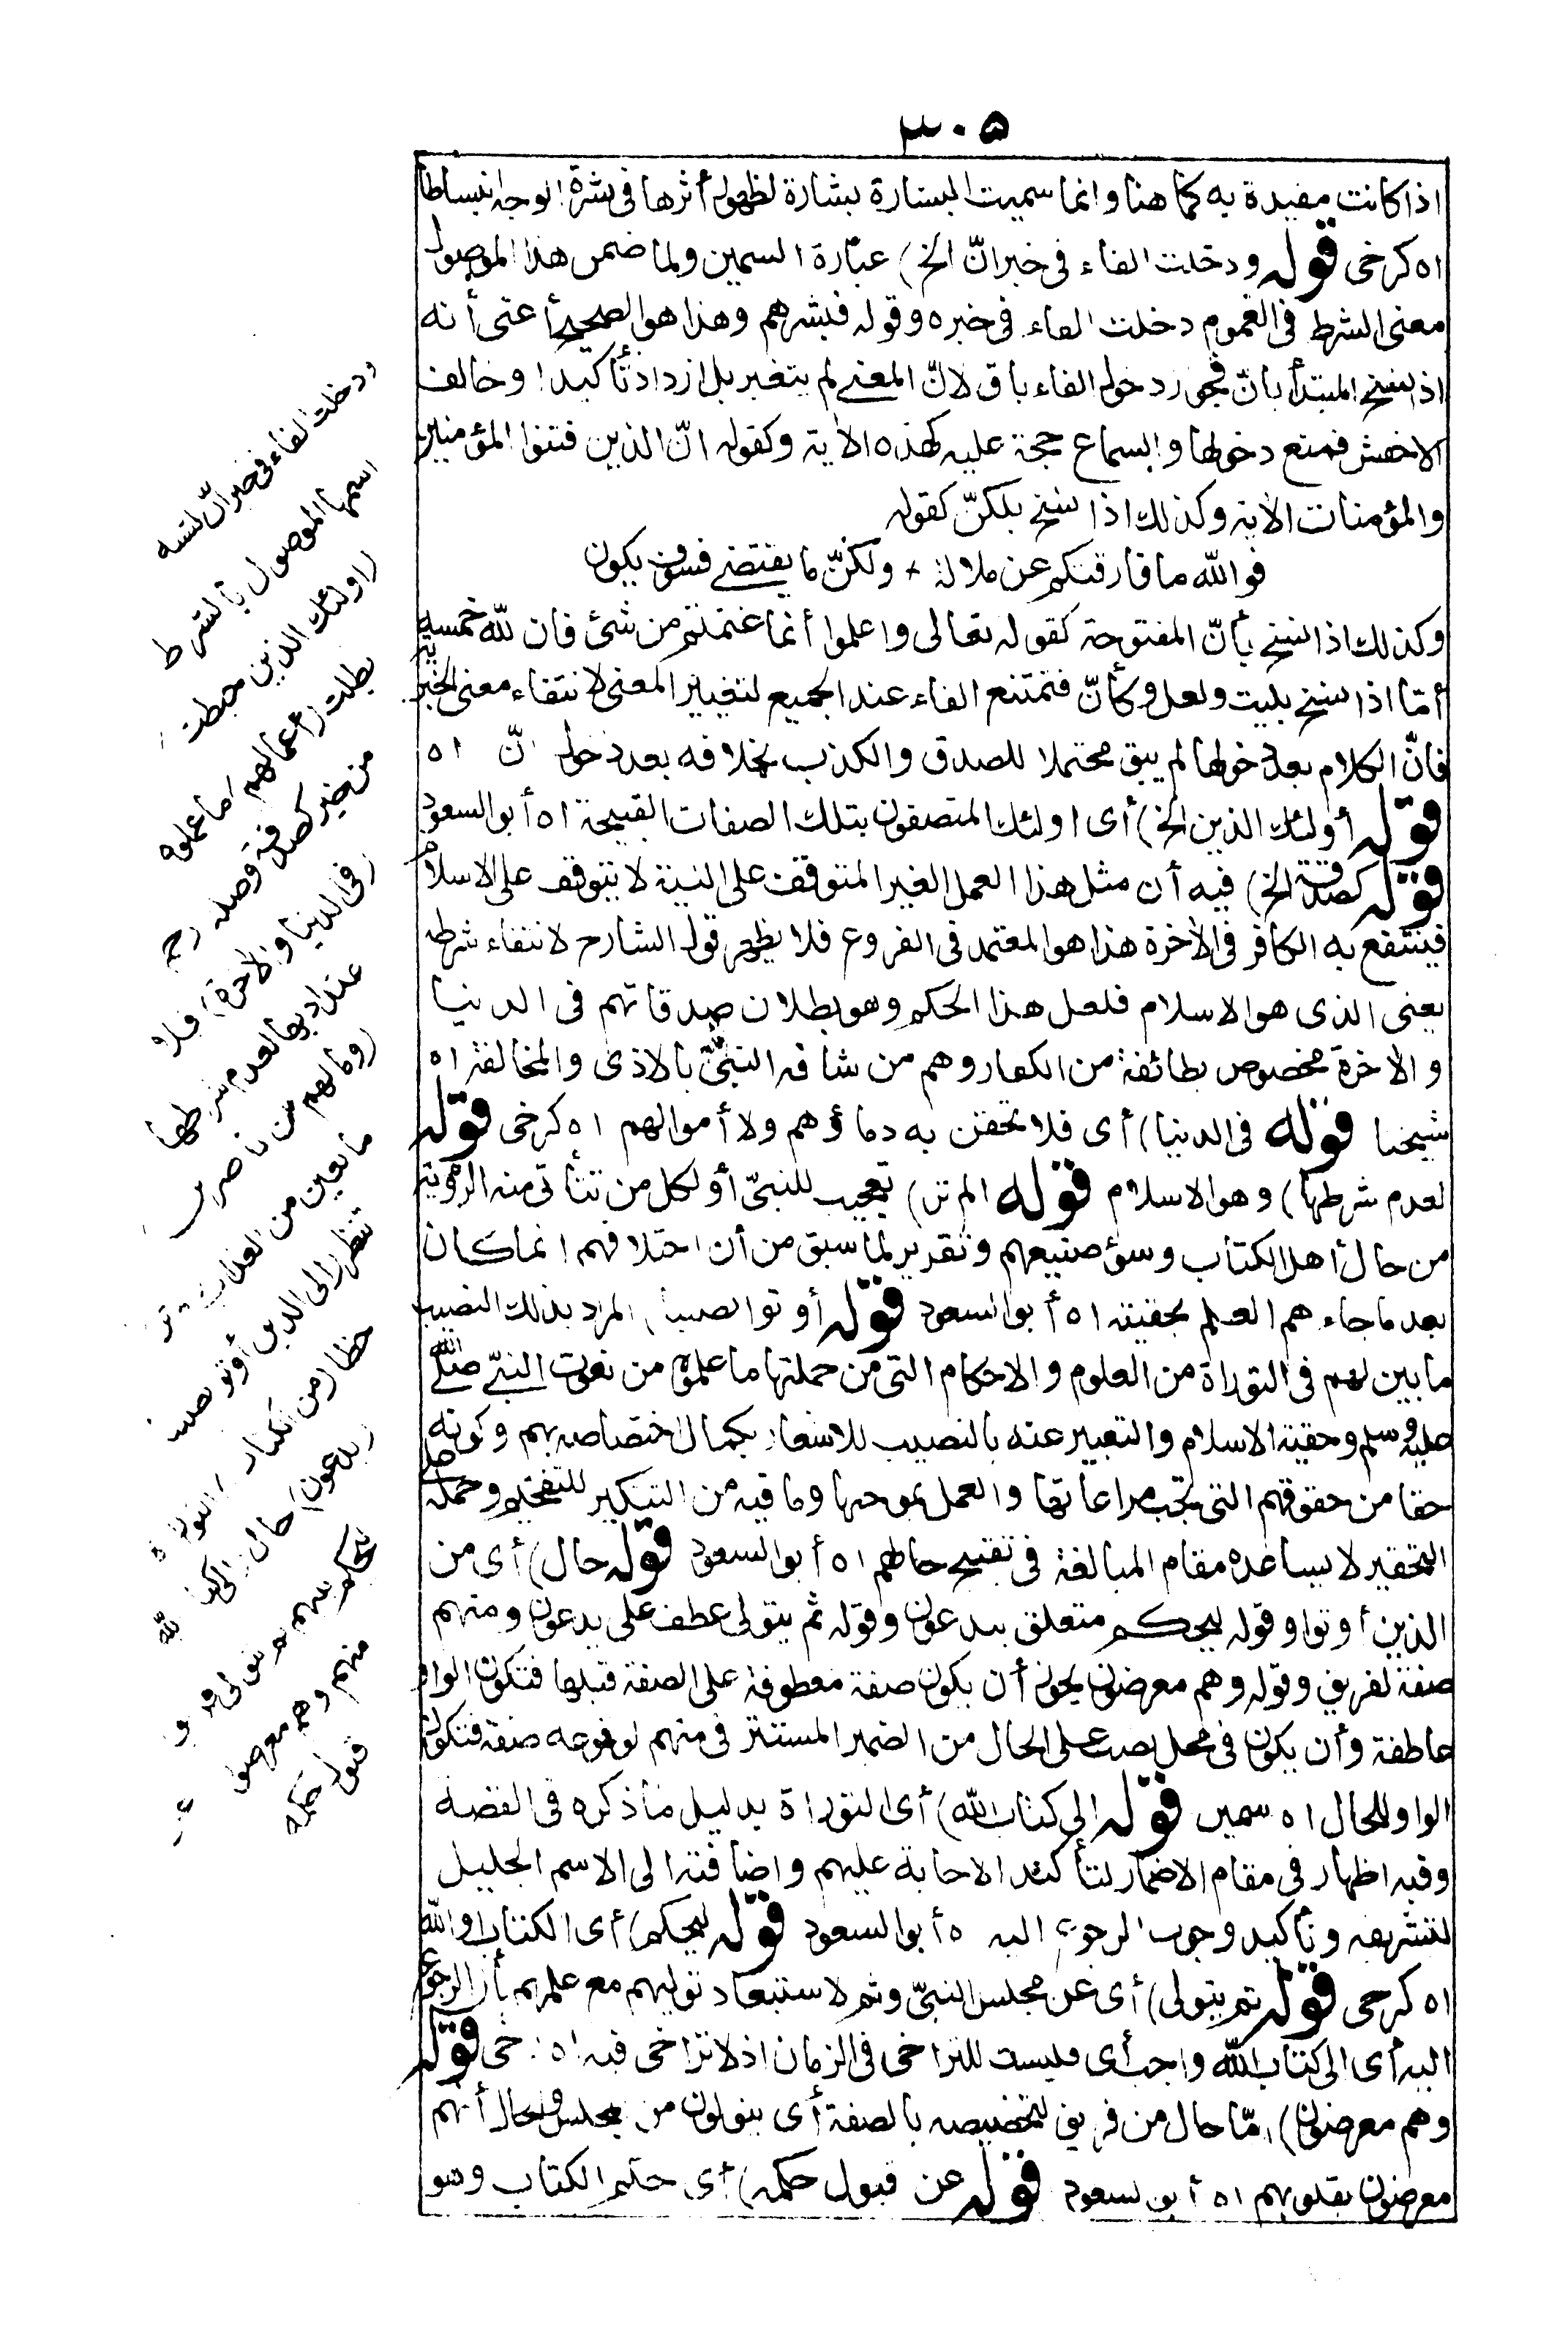 ٣٠٥
اذا كانت مفيدة به كما هنا وانما سميت البشارة بشارة لظهور أثرها فى بشرة الوجه انبساطا
اه كرخى قوله ودخلت الفاء فى خبر انّ الخ) عبارة السمين ولما ضمن هذا الموصول
معنى الشرط فى العموم دخلت الفاء فى خبره وقوله فبشرهم وهذا هو الصحيح أعنى أنه
اذا نسخ المبتدأ بانّ فجوز دخول الفاء باق لانّ المعنى لم يتغير بل ازداد تأكيدا وخالف
الاخفش فمنع دخولها والسماع حجة عليه كهذه الأية وكقوله انّ الذين فتنوا المؤمنين
والمؤمنات الأية وكذلك اذا نسخ بلكنّ كقوله
فوالله ما فارقتكم عن ملالة + ولكنّ ما يقتضى فسوف يكون
وكذلك اذا نسخ بأنّ المفتوحة كقوله تعالى واعلموا أنما غنمتم من شئ فان لله خمسه
أمّا اذا نسخ بليت ولعل وكأنّ فتمتنع الفاء عند الجميع لتغيير المعنى لانتفاء معنى الخبرية
فانّ الكلام بعد دخولها لم يبق محتملا للصدق والكذب بخلافه بعد دخول انّ اه
قوله أولئك الذين الخ) أى اولئك المتصفون بتلك الصفات القبيحة اه أبو السعود
قوله كصدقة الخ) فيه أن مثل هذا العمل الغير المتوقف على النية لا يتوقف على الاسلام
فينتفع به الكافر فى الأخرة هذا هو المعتمد فى الفروع فلا يظهر قول الشارح لانتفاء شرطه
يعنى الذى هو الاسلام فلعل هذا الحكم وهو بطلان صدقاتهم فى الدنيا
والأخرة مخصوص بطائفة من الكفار وهم من شافه النبىّ بالاذى والمخالفة اه
شيخنا قوله فى الدنيا) أى فلا تحقن به دماؤهم ولا أموالهم اه كرخى قوله
لعدم شرطها) وهو الاسلام قوله الم تر) تعجيب للنبىّ أو لكل من تتأتى منه الرؤية
من حال أهل الكتاب وسوء صنيعهم وتقرير لما سبق من أن اختلافهم انما كان
بعد ما جاءهم العلم بحقيته اه أبو السعود قوله أوتوا نصيبا) المراد بذلك النصيب
ما بين لهم فى التوراة من العلوم والاحكام التى من جملتها ما علموه من نعوت النبى صلى الله
عليه وسلم وحقية الاسلام والتعبير عنه بالنصيب للاشعار بكمال اختصاصه بهم وكونه
حقا من حقوقهم التى يجب مراعاتها والعمل بموجبها وما فيه من التنكير للتفخيم وحمله على
التحقير لا يساعده مقام المبالغة فى تقبيح حالهم اه أبو السعود قوله حال) أى من
الذين أوتوا وقوله ليحكم متعلق بيدعون وقوله ثم يتولى عطف على يدعون ومنهم
صفة لفريق وقوله وهم معرضون يجوز أن يكون صفة معطوفة على الصفة قبلها فتكون الواو
عاطفة وأن يكون فى محل نصب على الحال من الضمير المستتر فى منهم لوقوعه صفة فتكون
الواو للحال اه سمين قوله الى كتاب الله) أى التوراة بدليل ما ذكره فى القصة
وفيه اظهار فى مقام الاضمار لتأكيد الاجابة عليهم واضافته الى الاسم الجليل
لتشريفه وتأكيد وجوب الرجوع اليه اه أبو السعود قوله ليحكم) أى الكتاب او الله
اه كرخى قوله ثم يتولى) أى عن مجلس النبىّ وثم لاستبعاد توليهم مع علمهم بأن الرجوع
اليه أى الى كتاب الله واجب أى فليست للتراخى فى الزمان اذ لا تراخى فيه اه خى قوله
وهم معرضون) امّا حال من فريق لتخصيصه بالصفة أى يتولون من مجلس والحال أنهم
معرضون بقلوبهم اه أبو السعود قوله عن قبول حكمه) أى حكم الكتاب وهو
ودخلت الفاء فى خبر انّ لشبه
اسمها الموصول بالشرط
(اولئك الذين حبطت)
بطلت (أعمالهم) ما عملوه
من خير كصدقة وصلة رحم
(فى الدنيا والأخرة) فلا
عتداد بها لعدم شرطها
(وما لهم من ناصرين)
مانعين من العذاب (الم تر)
تنظر (الى الذين أوتوا نصيبا)
حظا (من الكتاب) التوراة
(يدعون) حال (الى كتاب الله
ليحكم بينهم ثم يتولى فريق
منهم وهم معرضون) عن
قبول حكمه